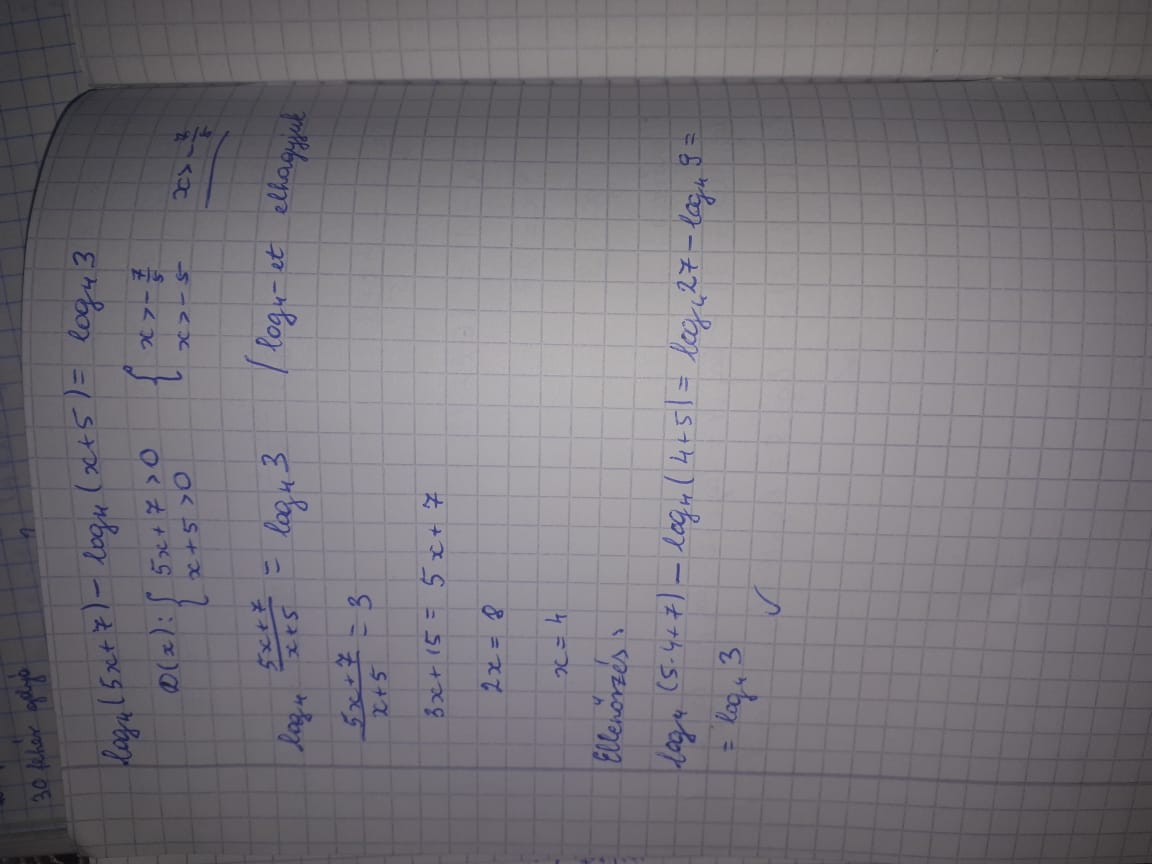 30 fehér
log₄(5x+7) - log₄(x+5) = log₄3
D(x): { 5x+7>0 { x>-7/5
x+5>0 x>-5 x>-7/5
log₄ (5x+7)/(x+5) = log₄3 / log₄-et elhagyjuk
(5x+7)/(x+5) = 3
3x+15 = 5x+7
2x = 8
x = 4
Ellenőrzés:
log₄(5·4+7) - log₄(4+5) = log₄27 - log₄9 =
= log₄3 ✓